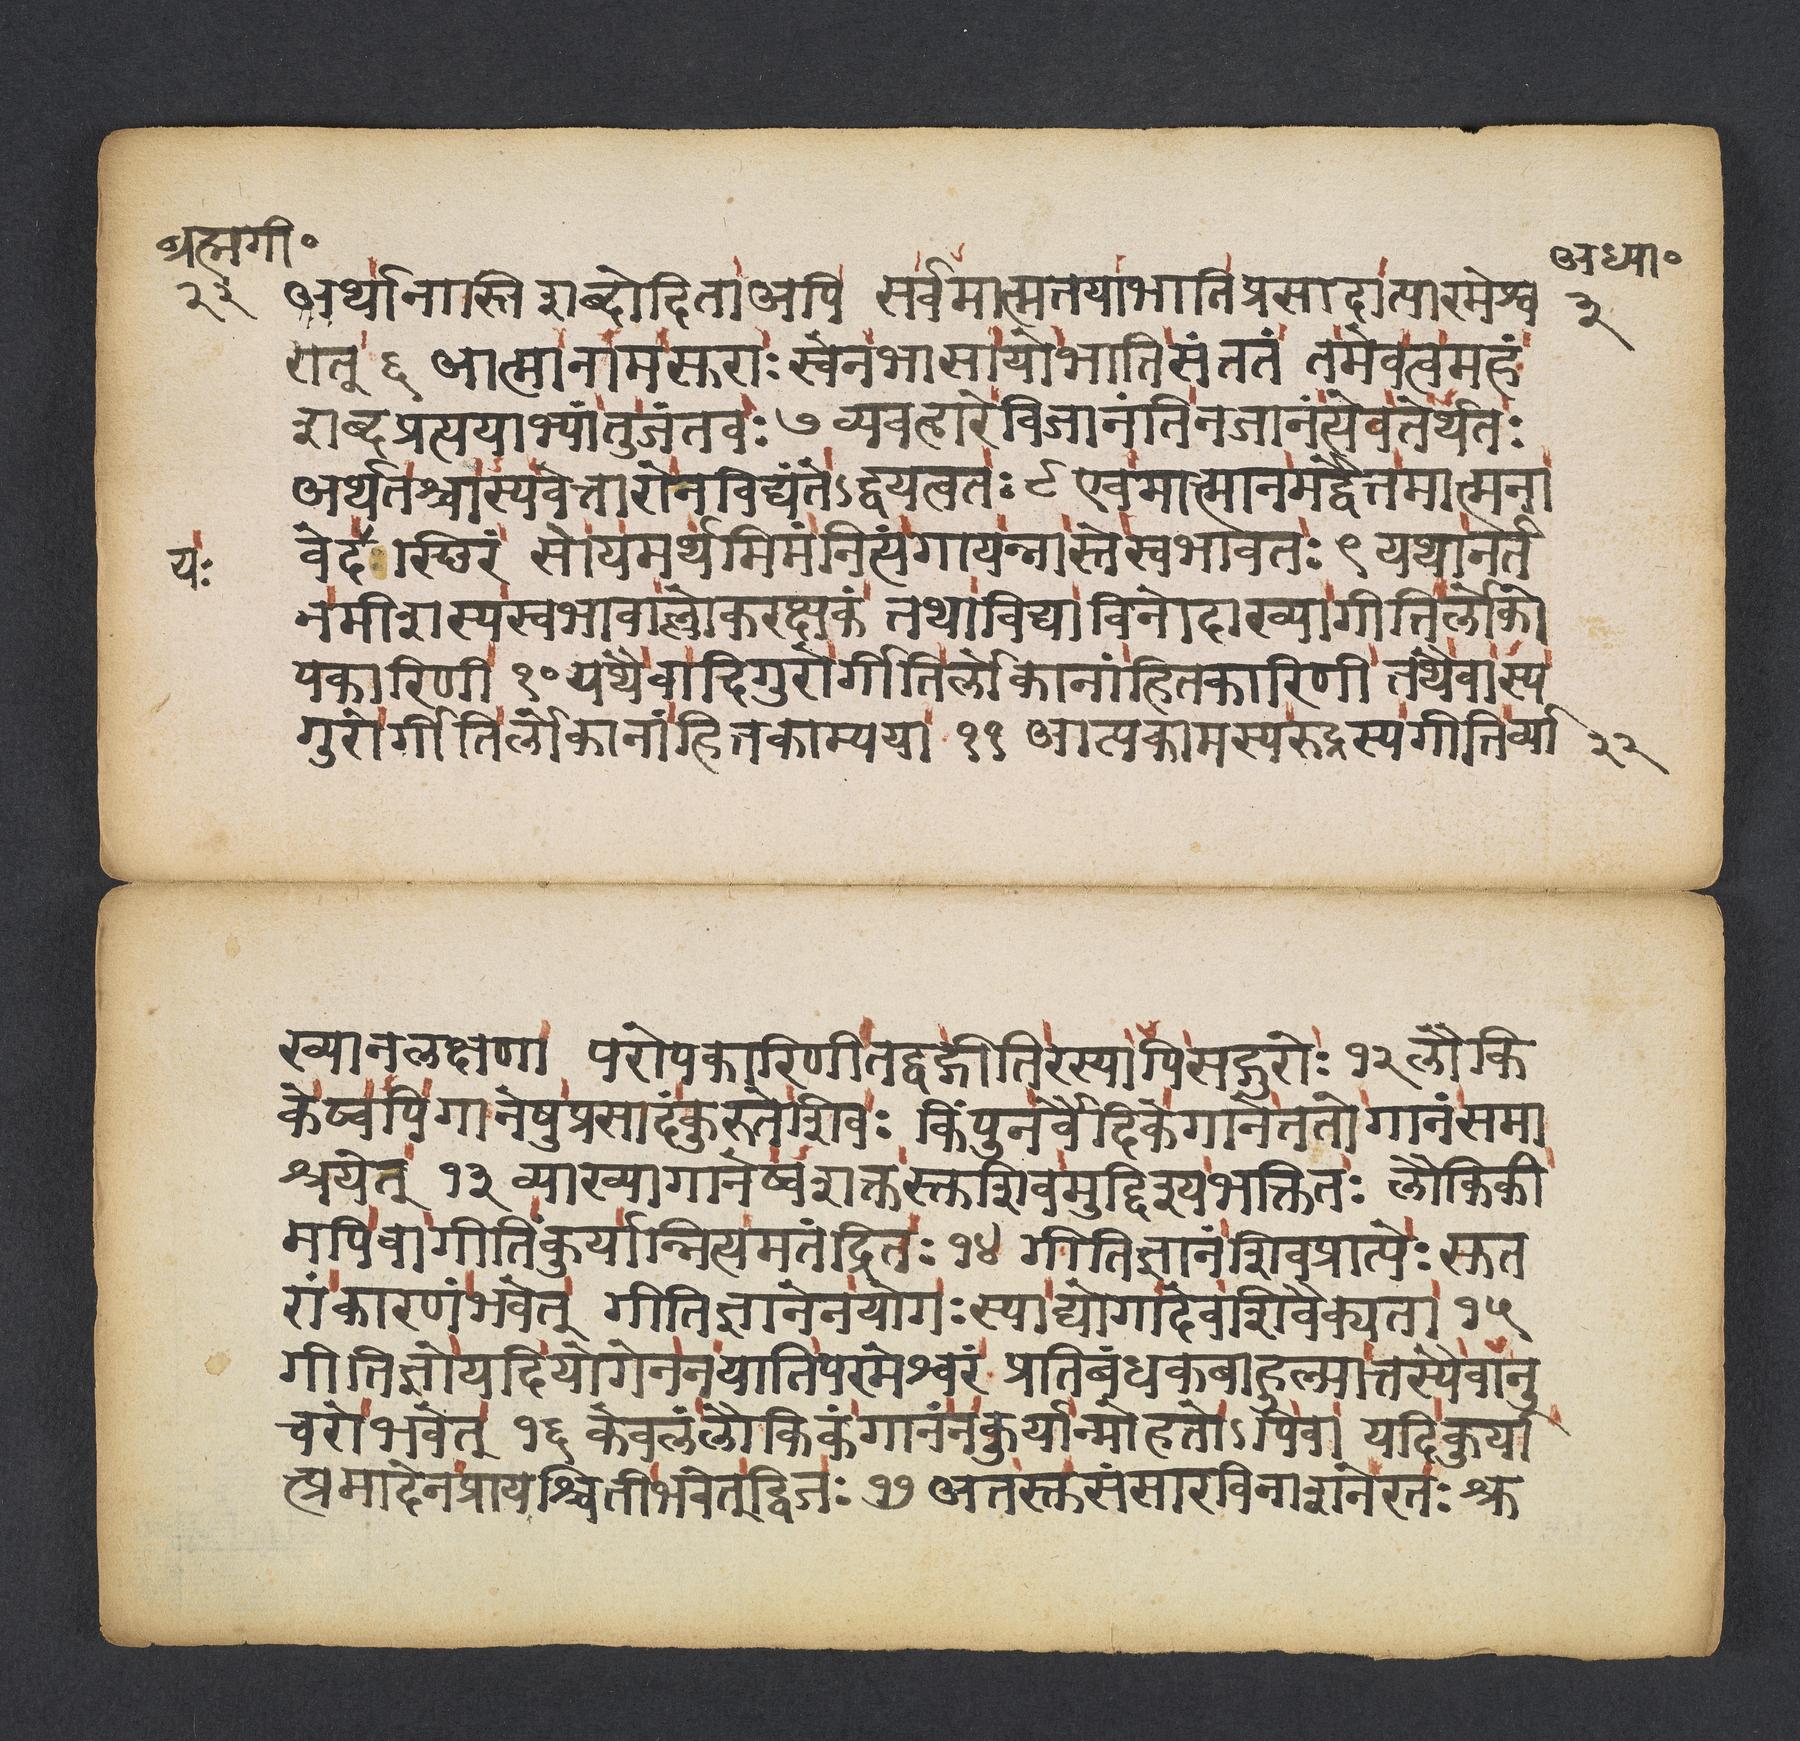 ब्रह्मगी॰
२२
अध्या॰
३
अर्थानास्तिशब्दोदिताअपि सर्वमात्मतयाभातिप्रसादात्पारमेश्व
रात् ६ आत्मानामसुराः स्वेनभासायोभातिसंततं तमेवत्वमहं
शब्दप्रत्ययाभ्यांतुजंतवः ७ व्यवहारेविजानंतिनजानंत्येवतेर्थतः
अर्थतश्चास्यवेत्तारोनविद्यंतेऽद्वयत्वतः ८ एवमात्मानमद्वैतमात्मना
यः
वेद स्थिरं सोयमर्थमिमंनित्यंगायन्नास्तेस्वभावतः ९ यथानर्त
नमीशस्यस्वभावाल्लोकरक्षकं तथाविद्याविनोदाख्यागीतिर्लोको
पकारिणी १० यथैवादिगुरोर्गीतिर्लोकानांहितकारिणी तथैवास्य
गुरोर्गीतिर्लोकानांहितकाम्यया ११ आप्तकामस्यरुद्रस्यगीतिर्व्या
२२
ख्यानलक्षणा परोपकारिणीतद्वद्गीतिरस्यापिसद्गुरोः १२ लौकि
केष्वपिगानेषुप्रसादंकुरुतेशिवः किंपुनर्वैदिकेगानेततोगानंसमा
श्रयेत् १३ व्याख्यागानेष्वशक्तस्तुशिवमुद्दिश्यभक्तितः लौकिकी
मपिवागीतिंकुर्यान्नित्यमतंद्रितः १४ गीतिज्ञानंशिवप्राप्तेः सुत
रांकारणंभवेत् गीतिज्ञानेनयोगः स्याद्योगादेवशिवैक्यता १५
गीतिज्ञोयदियोगेननयातिपरमेश्वरं प्रतिबंधकबाहुल्यात्तस्यैवानु
चरोभवेत् १६ केवलंलौकिकंगानंनकुर्यान्मोहतोऽपिवा यदिकुर्या
त्प्रमादेनप्रायश्चित्तीभवेत्द्विजः १७ अतस्तुसंसारविनाशनेरतः श्रु